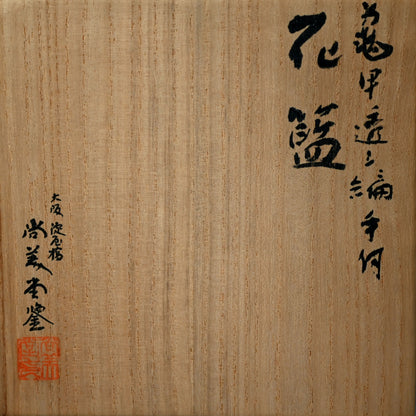 龜甲透シ編手付
花籃
大阪 淀屋橋
尚美堂鑒